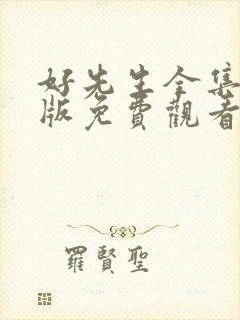 好先生全集
版免費觀看
羅賢聖